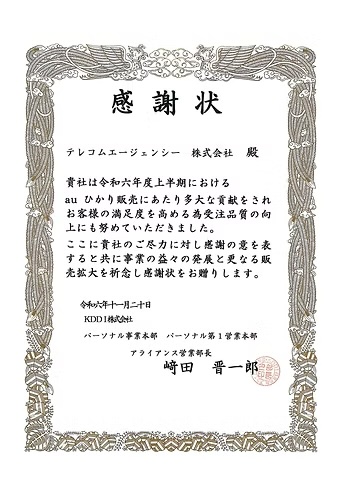 感謝状
テレコムエージェンシー 株式会社 殿
貴社は令和六年度上半期における
au ひかり販売にあたり多大な貢献をされ
お客様の満足度を高める為受注品質の向
上にも努めていただきました。
ここに貴社のご尽力に対し感謝の意を表
すると共に事業の益々の発展と更なる販
売拡大を祈念し感謝状をお贈りします。
令和六年十一月二十日
KDDI株式会社
パーソナル事業本部 パーソナル第1営業本部
アライアンス営業部長
﨑田 晋一郎